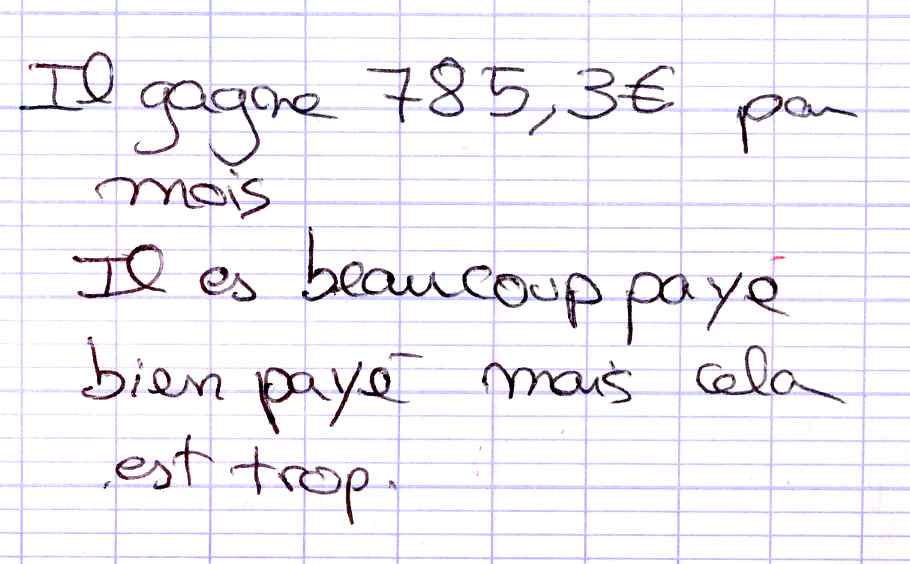 Il gagne 785,3€ par
mois
Il es beaucoup payé
bien payé mais cela
est trop.